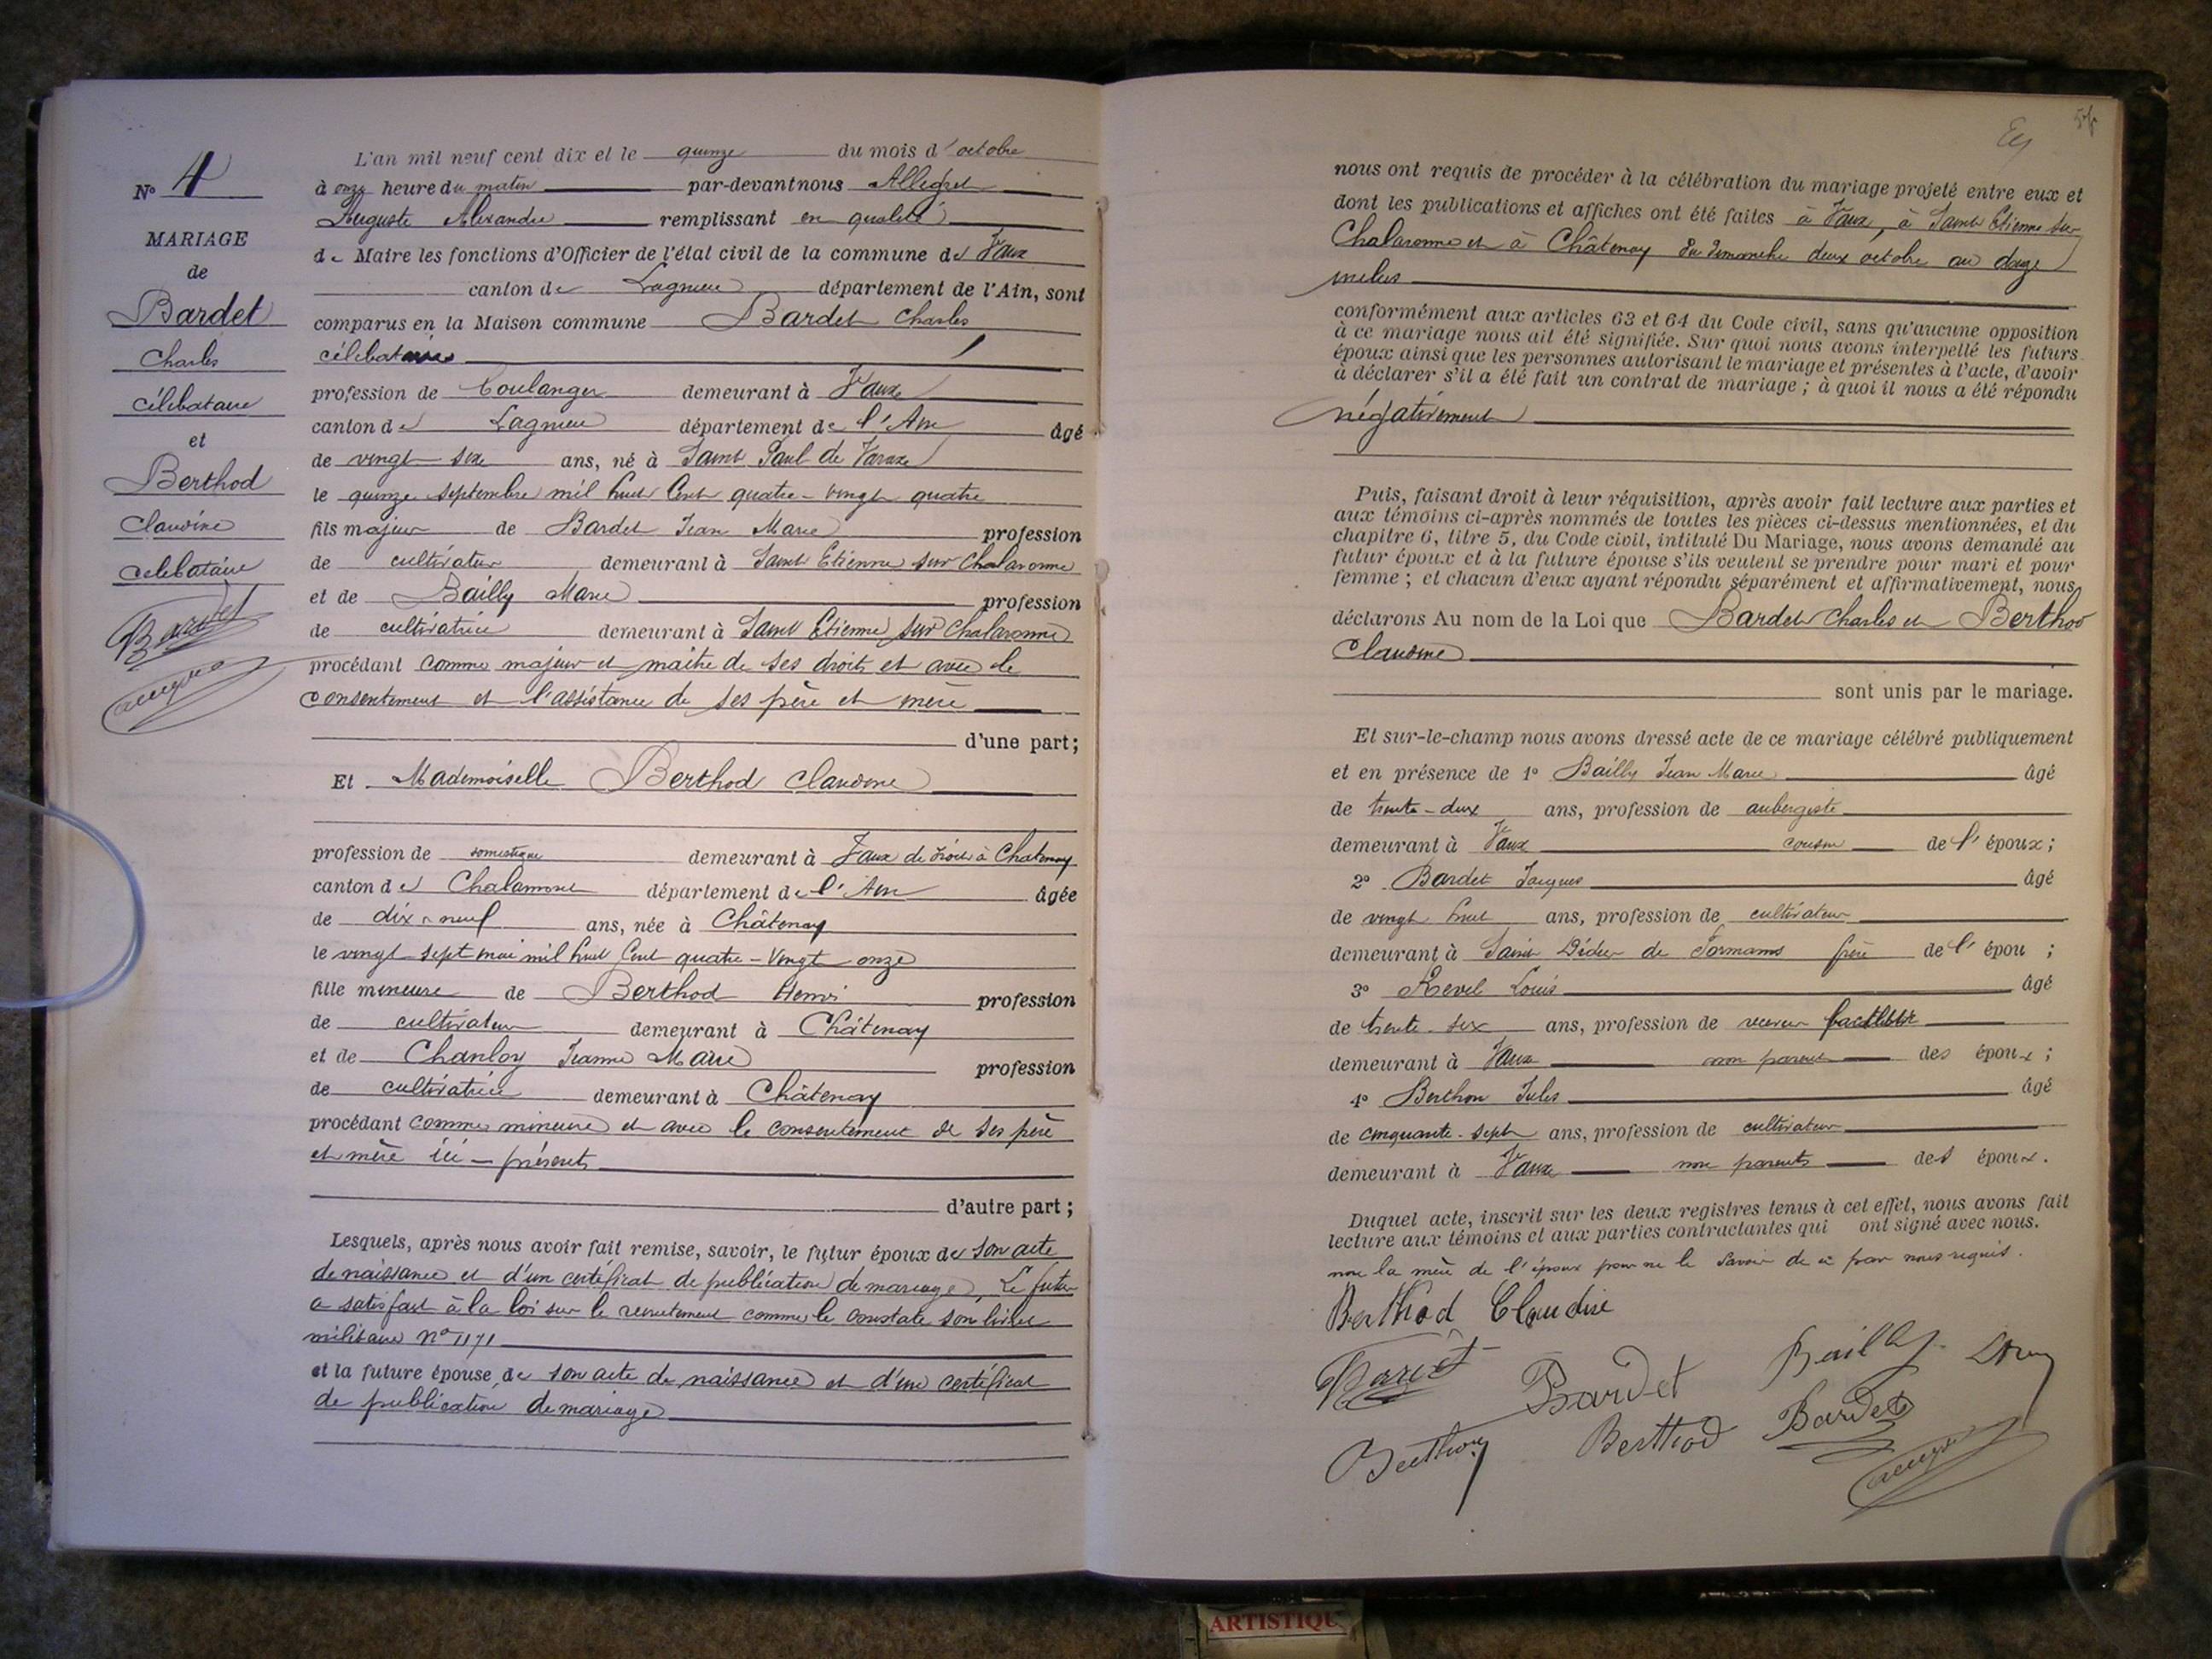 N° 4
MARIAGE
de
Bardet
Charles
célibataire
et
Berthod
Claudine
celebataire
Bardet
L'an mil neuf cent dix et le quinze du mois d'octobre
à onze heure du matin par-devant nous Allegret
Auguste Alexandre remplissant en qualité
de Maire les fonctions d'Officier de l'état civil de la commune de Vaux
canton de Lagnieu département de l'Ain, sont
comparus en la Maison commune Bardet Charles
célibataire
profession de boulanger demeurant à Vaux
canton de Lagnieu département de l'Ain âgé
de vingt six ans, né à Saint Paul de Varax
le quinze septembre mil huit Cent quatre-vingt quatre
fils majeur de Bardet Jean Marie profession
de cultivateur demeurant à Saint Etienne sur Chalaronne
et de Bailly Marie profession
de cultivatrice demeurant à Saint Etienne sur Chalaronne
procédant comme majeur et maître de ses droits et avec le
consentement et l'assistance de ses père et mère
d'une part;
Et Mademoiselle Berthod Claudine
profession de domestique demeurant à Vaux de droit à Chatenay
canton de Chalamont département de l'Ain âgée
de dix-neuf ans, née à Châtenay
le vingt sept mai mil huit Cent quatre-Vingt onze
fille mineure de Berthod Henri profession
de cultivateur demeurant à Châtenay
et de Chanloy Jeanne Marie profession
de cultivatrice demeurant à Châtenay
procédant comme mineure et avec le consentement de ses père
et mère ici-présents
d'autre part;
Lesquels, après nous avoir fait remise, savoir, le futur époux de son acte
de naissance et d'un certificat de publication de mariage, Le futur
a satisfait à la loi sur le recrutement comme le constate son livret
militaire n° 1171
et la future épouse de son acte de naissance et d'un certificat
de publication de mariage
nous ont requis de procéder à la célébration du mariage projeté entre eux et
dont les publications et affiches ont été faites à Vaux, à Saint Etienne sur
Chalaronne et à Châtenay du dimanche deux octobre au douze
inclus
conformément aux articles 63 et 64 du Code civil, sans qu'aucune opposition
à ce mariage nous ait été signifiée. Sur quoi nous avons interpellé les futurs
époux ainsi que les personnes autorisant le mariage et présentes à l'acte, d'avoir
à déclarer s'il a été fait un contrat de mariage; à quoi il nous a été répondu
négativement
Puis, faisant droit à leur réquisition, après avoir fait lecture aux parties et
aux témoins ci-après nommés de toutes les pièces ci-dessus mentionnées, et du
chapitre 6, titre 5, du Code civil, intitulé Du Mariage, nous avons demandé au
futur époux et à la future épouse s'ils veulent se prendre pour mari et pour
femme; et chacun d'eux ayant répondu séparément et affirmativement, nous
déclarons Au nom de la Loi que Bardet Charles et Berthod
Claudine
sont unis par le mariage.
Et sur-le-champ nous avons dressé acte de ce mariage célébré publiquement
et en présence de 1° Bailly Jean Marie âgé
de trente-deux ans, profession de aubergiste
demeurant à Vaux cousin de l'époux;
2° Bardet Jacques âgé
de vingt huit ans, profession de cultivateur
demeurant à Saint Didier de Formans frère de l'épou;
3° Revel Louis âgé
de trente-six ans, profession de receveur
demeurant à Vaux non parent des époux;
4° Berthon Jules âgé
de cinquante-sept ans, profession de cultivateur
demeurant à Vaux non parents des époux.
Duquel acte, inscrit sur les deux registres tenus à cet effet, nous avons fait
lecture aux témoins et aux parties contractantes qui ont signé avec nous.
non la mère de l'époux pour ne le savoir de ce par nous requis.
Berthod Claudine
Bardet Bardet Bailly
Berthon Berthod Bardet
ARTISTIQU